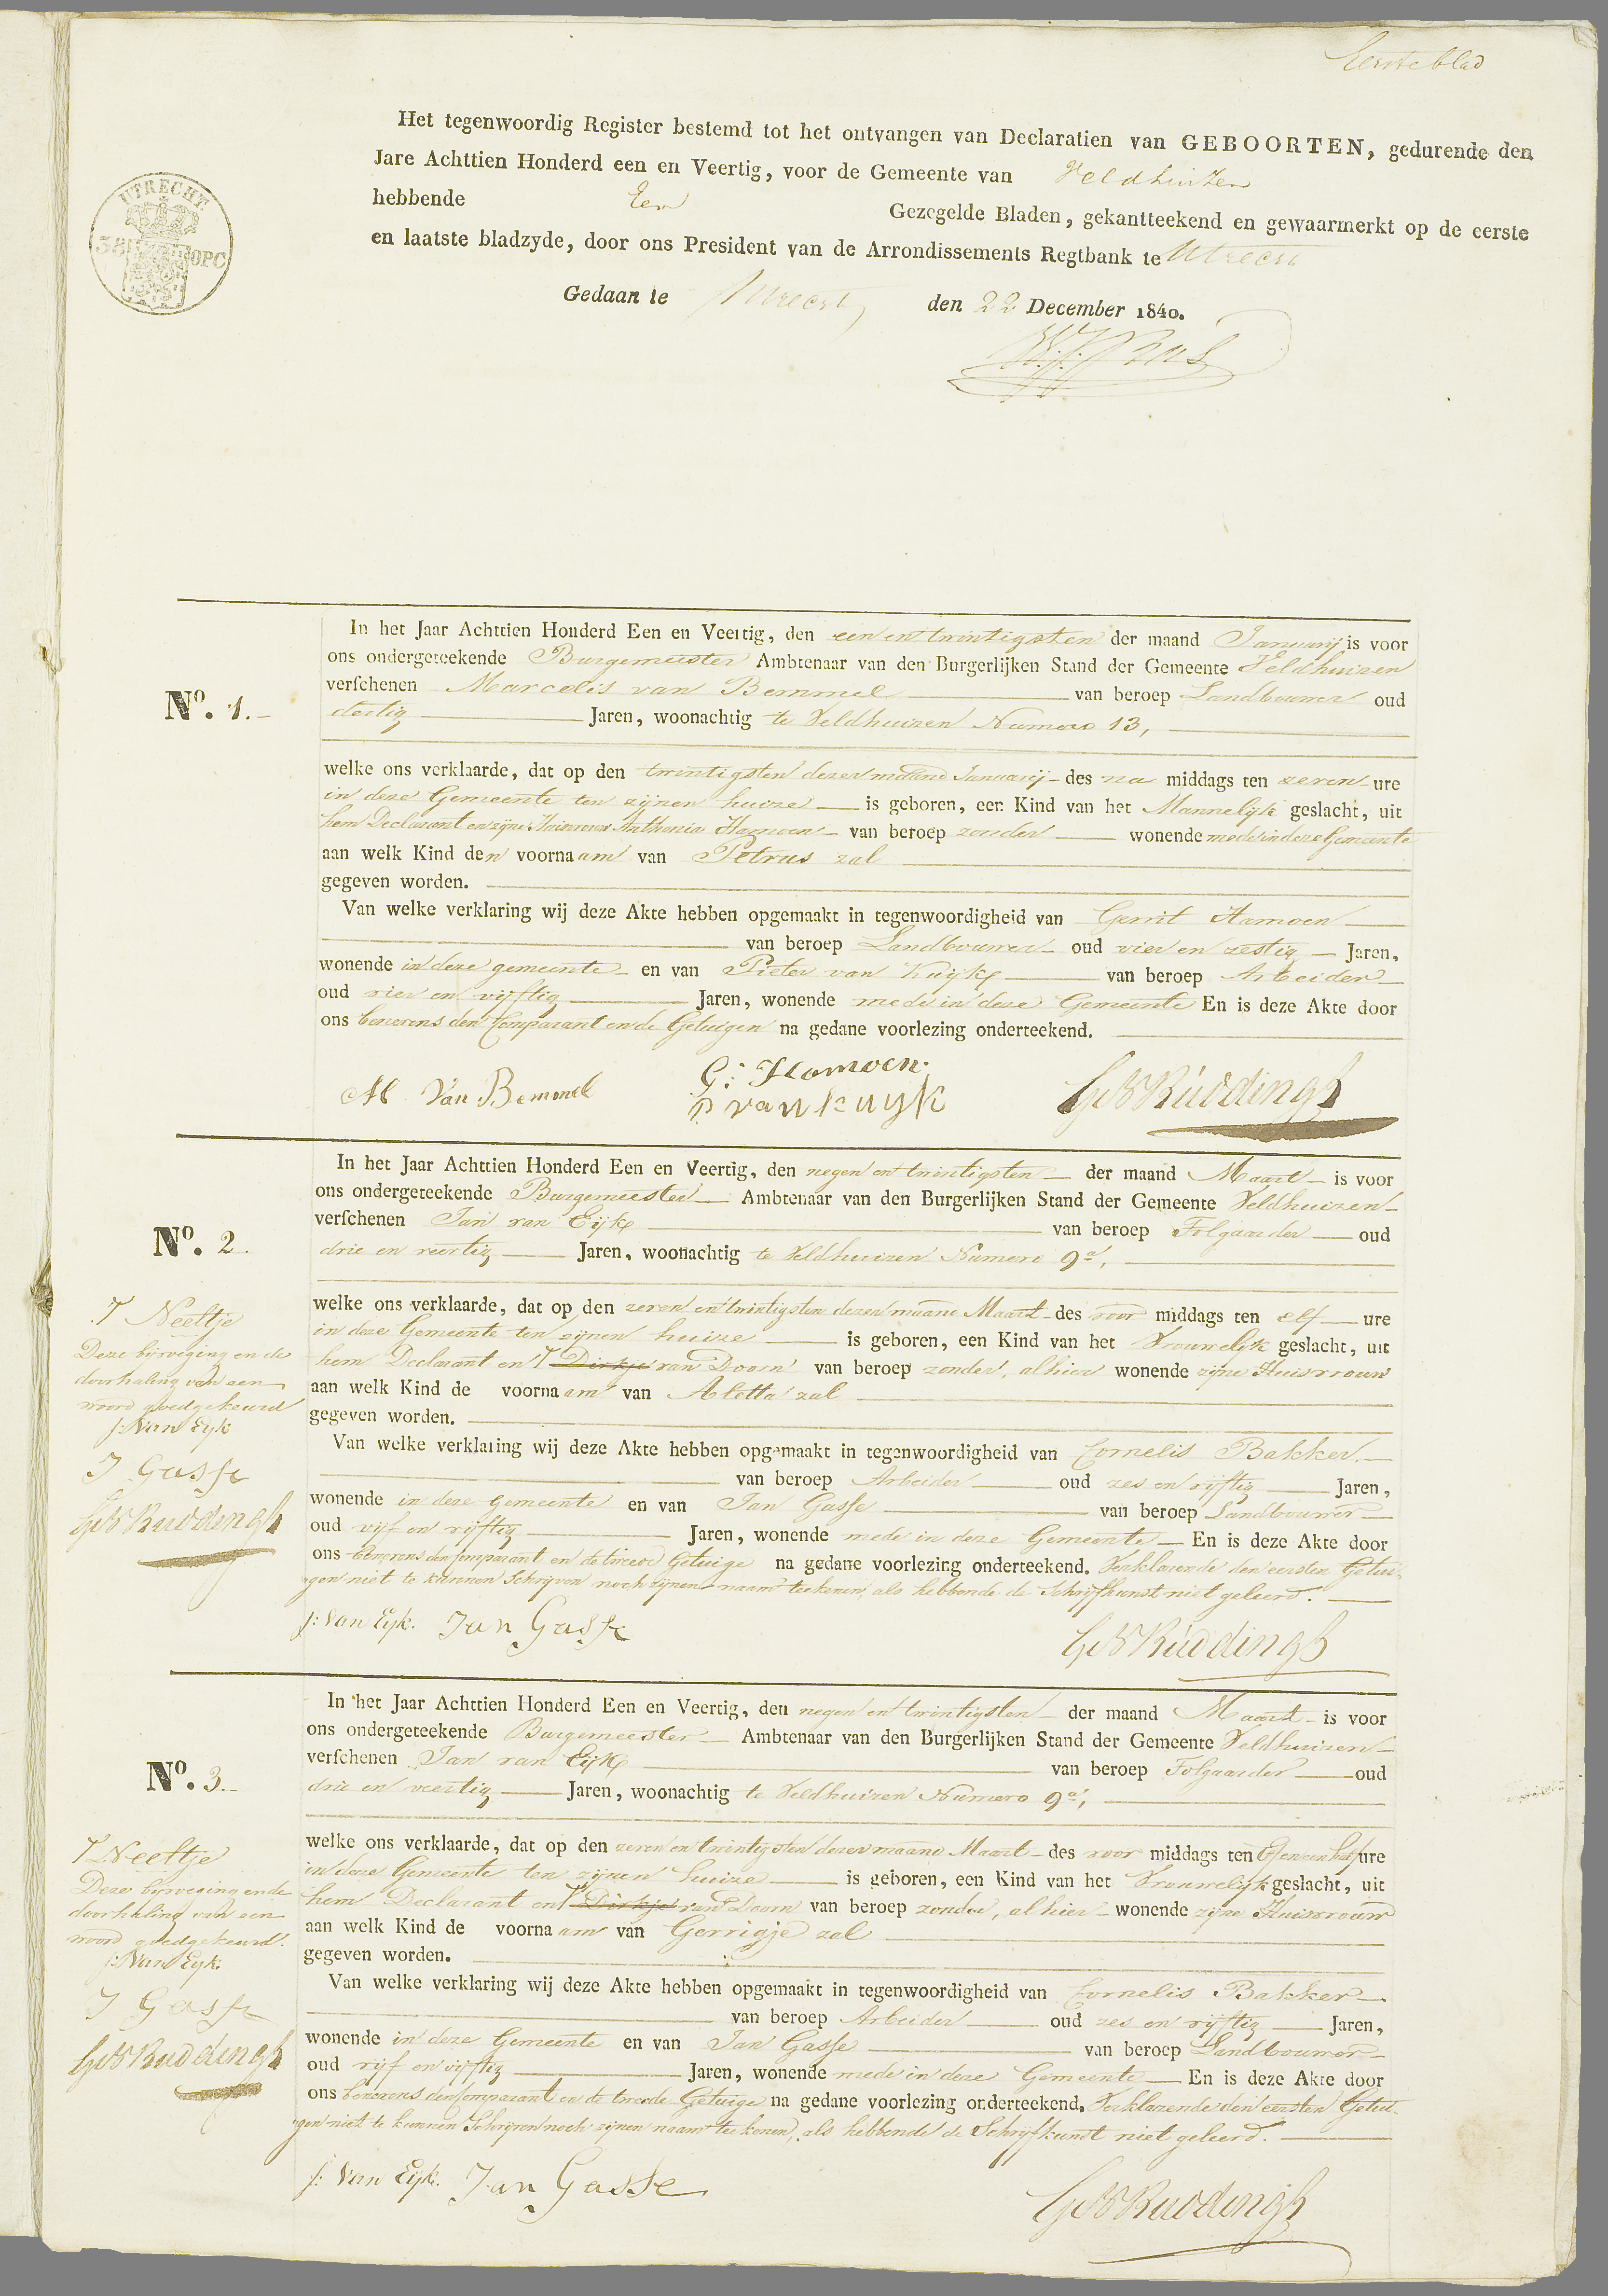 Eerste blad
Het tegenwoordig Register bestemd tot het ontvangen van Declaratien van GEBOORTEN, gedurende den
Jare Achttien Honderd een en Veertig, voor de Gemeente van Veldhuizen
hebbende Een Gezegelde Bladen, gekantteekend en gewaarmerkt op de eerste
en laatste bladzyde, door ons President van de Arrondissements Regtbank te Utrecht
Gedaan te Utrecht den 22 December 1840.
UTRECHT
38 OPC
In het Jaar Achttien Honderd Een en Veertig, den een en twintigsten der maand Januarij is voor
ons ondergeteekende Burgemeester Ambtenaar van den Burgerlijken Stand der Gemeente Veldhuizen
verschenen Marcelis van Bemmel van beroep Landbouwer oud
No. 1.
dertig Jaren, woonachtig te Veldhuizen Numero 13,
welke ons verklaarde, dat op den twintigsten dezer maand Januarij des na middags ten zeven ure
in deze Gemeente ten zijnen huize is geboren, een Kind van het Mannelijk geslacht, uit
hem Declarant en zijne Huisvrouw Anthonia Hamoen van beroep zonder wonende mede in deze Gemeente
aan welk Kind den voornaam van Petrus zal
gegeven worden.
Van welke verklaring wij deze Akte hebben opgemaakt in tegenwoordigheid van Gerrit Hamoen
van beroep Landbouwer oud vier en zestig Jaren,
wonende in deze gemeente en van Pieter van Kuijk van beroep Arbeider
oud vier en vijftig Jaren, wonende mede in deze Gemeente En is deze Akte door
ons benevens den Comparant en de Getuigen na gedane voorlezing onderteekend.
M. Van Bemmel G: Hamoen. P. van kuyk GvB Ruddingh
In het Jaar Achttien Honderd Een en Veertig, den negen en twintigsten der maand Maart is voor
ons ondergeteekende Burgemeester Ambtenaar van den Burgerlijken Stand der Gemeente Veldhuizen
verschenen Jan van Eijk van beroep Tolgaarder oud
No. 2.
drie en veertig Jaren, woonachtig te Veldhuizen Numero 9a,
welke ons verklaarde, dat op den zeven en twintigsten dezer maand Maart des voor middags ten elf ure
in deze Gemeente ten zijnen huize is geboren, een Kind van het Vrouwelijk geslacht, uit
hem Declarant en Dirkje van Doorn van beroep zonder, alhier wonende zijne Huisvrouw
aan welk Kind de voornaam van Aletta zal
gegeven worden.
Van welke verklaring wij deze Akte hebben opgemaakt in tegenwoordigheid van Cornelis Bakker.
van beroep Arbeider oud zes en vijftig Jaren,
wonende in deze Gemeente en van Jan Gasse van beroep Landbouwer
oud vijf en vijftig Jaren, wonende mede in deze Gemeente En is deze Akte door
ons benevens den Comparant en de tweede Getuige na gedane voorlezing onderteekend. Verklarende den eersten Getui-
gen niet te kunnen Schrijven noch zijnen naam teekenen, als hebbende de Schrijfkunst niet geleerd.
J: Van Eyk. Jan Gasse GvB Ruddingh
Neeltje
Deze bijvoeging en de
doorhaling van een
woord goedgekeurd
J: Van Eyk
J Gasse
GvB Ruddingh
In het Jaar Achttien Honderd Een en Veertig, den negen en twintigsten der maand Maart is voor
ons ondergeteekende Burgemeester Ambtenaar van den Burgerlijken Stand der Gemeente Veldhuizen
verschenen Jan van Eijk van beroep Tolgaarder oud
No. 3.
drie en veertig Jaren, woonachtig te Veldhuizen Numero 9a,
welke ons verklaarde, dat op den zeven en twintigsten dezer maand Maart des voor middags ten Elf en een half ure
in deze Gemeente ten zijnen huize is geboren, een Kind van het Vrouwelijk geslacht, uit
hem Declarant en Dirkje van Doorn van beroep zonder, alhier wonende zijne Huisvrouw
aan welk Kind de voornaam van Gerrigje zal
gegeven worden.
Van welke verklaring wij deze Akte hebben opgemaakt in tegenwoordigheid van Cornelis Bakker
van beroep Arbeider oud zes en vijftig Jaren,
wonende in deze Gemeente en van Jan Gasse van beroep Landbouwer
oud vijf en vijftig Jaren, wonende mede in deze Gemeente En is deze Akte door
ons benevens den Comparant en de tweede Getuige na gedane voorlezing onderteekend. Verklarende den eersten Getui-
gen niet te kunnen Schrijven noch zijnen naam teekenen, als hebbende de Schrijfkunst niet geleerd.
J: Van Eyk. Jan Gasse GvB Ruddingh
Neeltje
Deze bijvoeging en de
doorhaling van een
woord goedgekeurd.
J: Van Eyk.
J Gasse
GvB Ruddingh